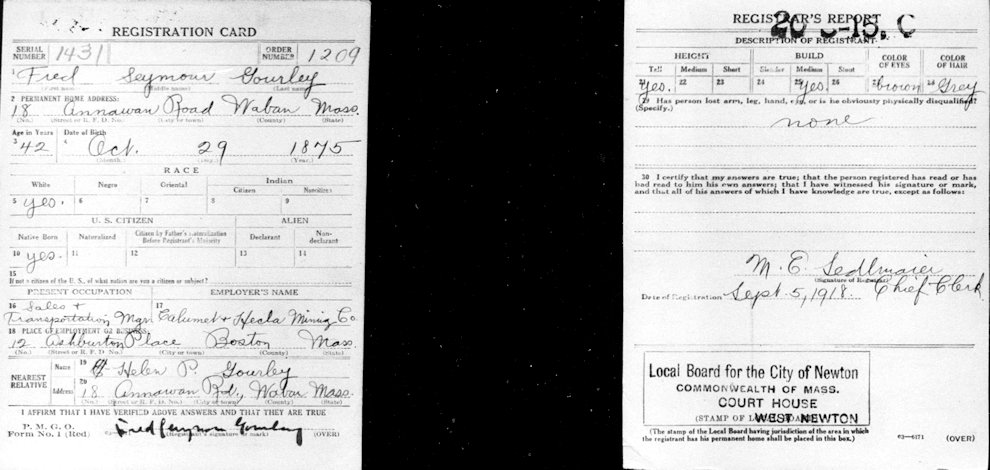 REGISTRATION CARD
SERIAL NUMBER 1431 ORDER NUMBER 1209
1 Fred Seymour Gourley
(First name) (Middle name) (Last name)
2 PERMANENT HOME ADDRESS:
18 Annawan Road Waban Mass.
(No.) (Street or R. F. D. No.) (City or town) (County) (State)
Age in Years Date of Birth
3 42 4 Oct. 29 1875
(Month.) (Day.) (Year.)
RACE
White Negro Oriental Indian
Citizen Noncitizen
5 yes. 6 7 8 9
U. S. CITIZEN ALIEN
Native Born Naturalized Citizen by Father's Naturalization Before Registrant's Majority Declarant Non-declarant
10 yes. 11 12 13 14
15
If not a citizen of the U. S., of what nation are you a citizen or subject?
PRESENT OCCUPATION EMPLOYER'S NAME
16 Sales + 17
Transportation Mgr. Calumet + Hecla Mining Co
18 PLACE OF EMPLOYMENT OR BUSINESS:
12 Ashburton Place Boston Mass.
(No.) (Street or R. F. D. No.) (City or town) (County) (State)
NEAREST RELATIVE Name 19 Helen P. Gourley
Address 20 18 Annawan Rd., Waban Mass.
(No.) (Street or R. F. D. No.) (City or town) (County) (State)
I AFFIRM THAT I HAVE VERIFIED ABOVE ANSWERS AND THAT THEY ARE TRUE
P. M. G. O.
Form No. 1 (Red) Fred Seymour Gourley
(Registrant's signature or mark) (OVER)
REGISTRAR'S REPORT
20 5-15. C
DESCRIPTION OF REGISTRANT
HEIGHT BUILD COLOR OF EYES COLOR OF HAIR
Tall Medium Short Slender Medium Stout
21 yes. 22 23 24 25 yes. 26 27 brown 28 Grey
29 Has person lost arm, leg, hand, eye, or is he obviously physically disqualified?
(Specify.)
none
30 I certify that my answers are true; that the person registered has read or has
had read to him his own answers; that I have witnessed his signature or mark,
and that all of his answers of which I have knowledge are true, except as follows:
M. E. Sedlmaier
(Signature of Registrar)
Date of Registration Sept. 5, 1918. Chief Clerk
Local Board for the City of Newton
COMMONWEALTH OF MASS.
COURT HOUSE
WEST NEWTON
(STAMP OF LOCAL BOARD)
(The stamp of the Local Board having jurisdiction of the area in which
the registrant has his permanent home shall be placed in this box.)
03—6171 (OVER)